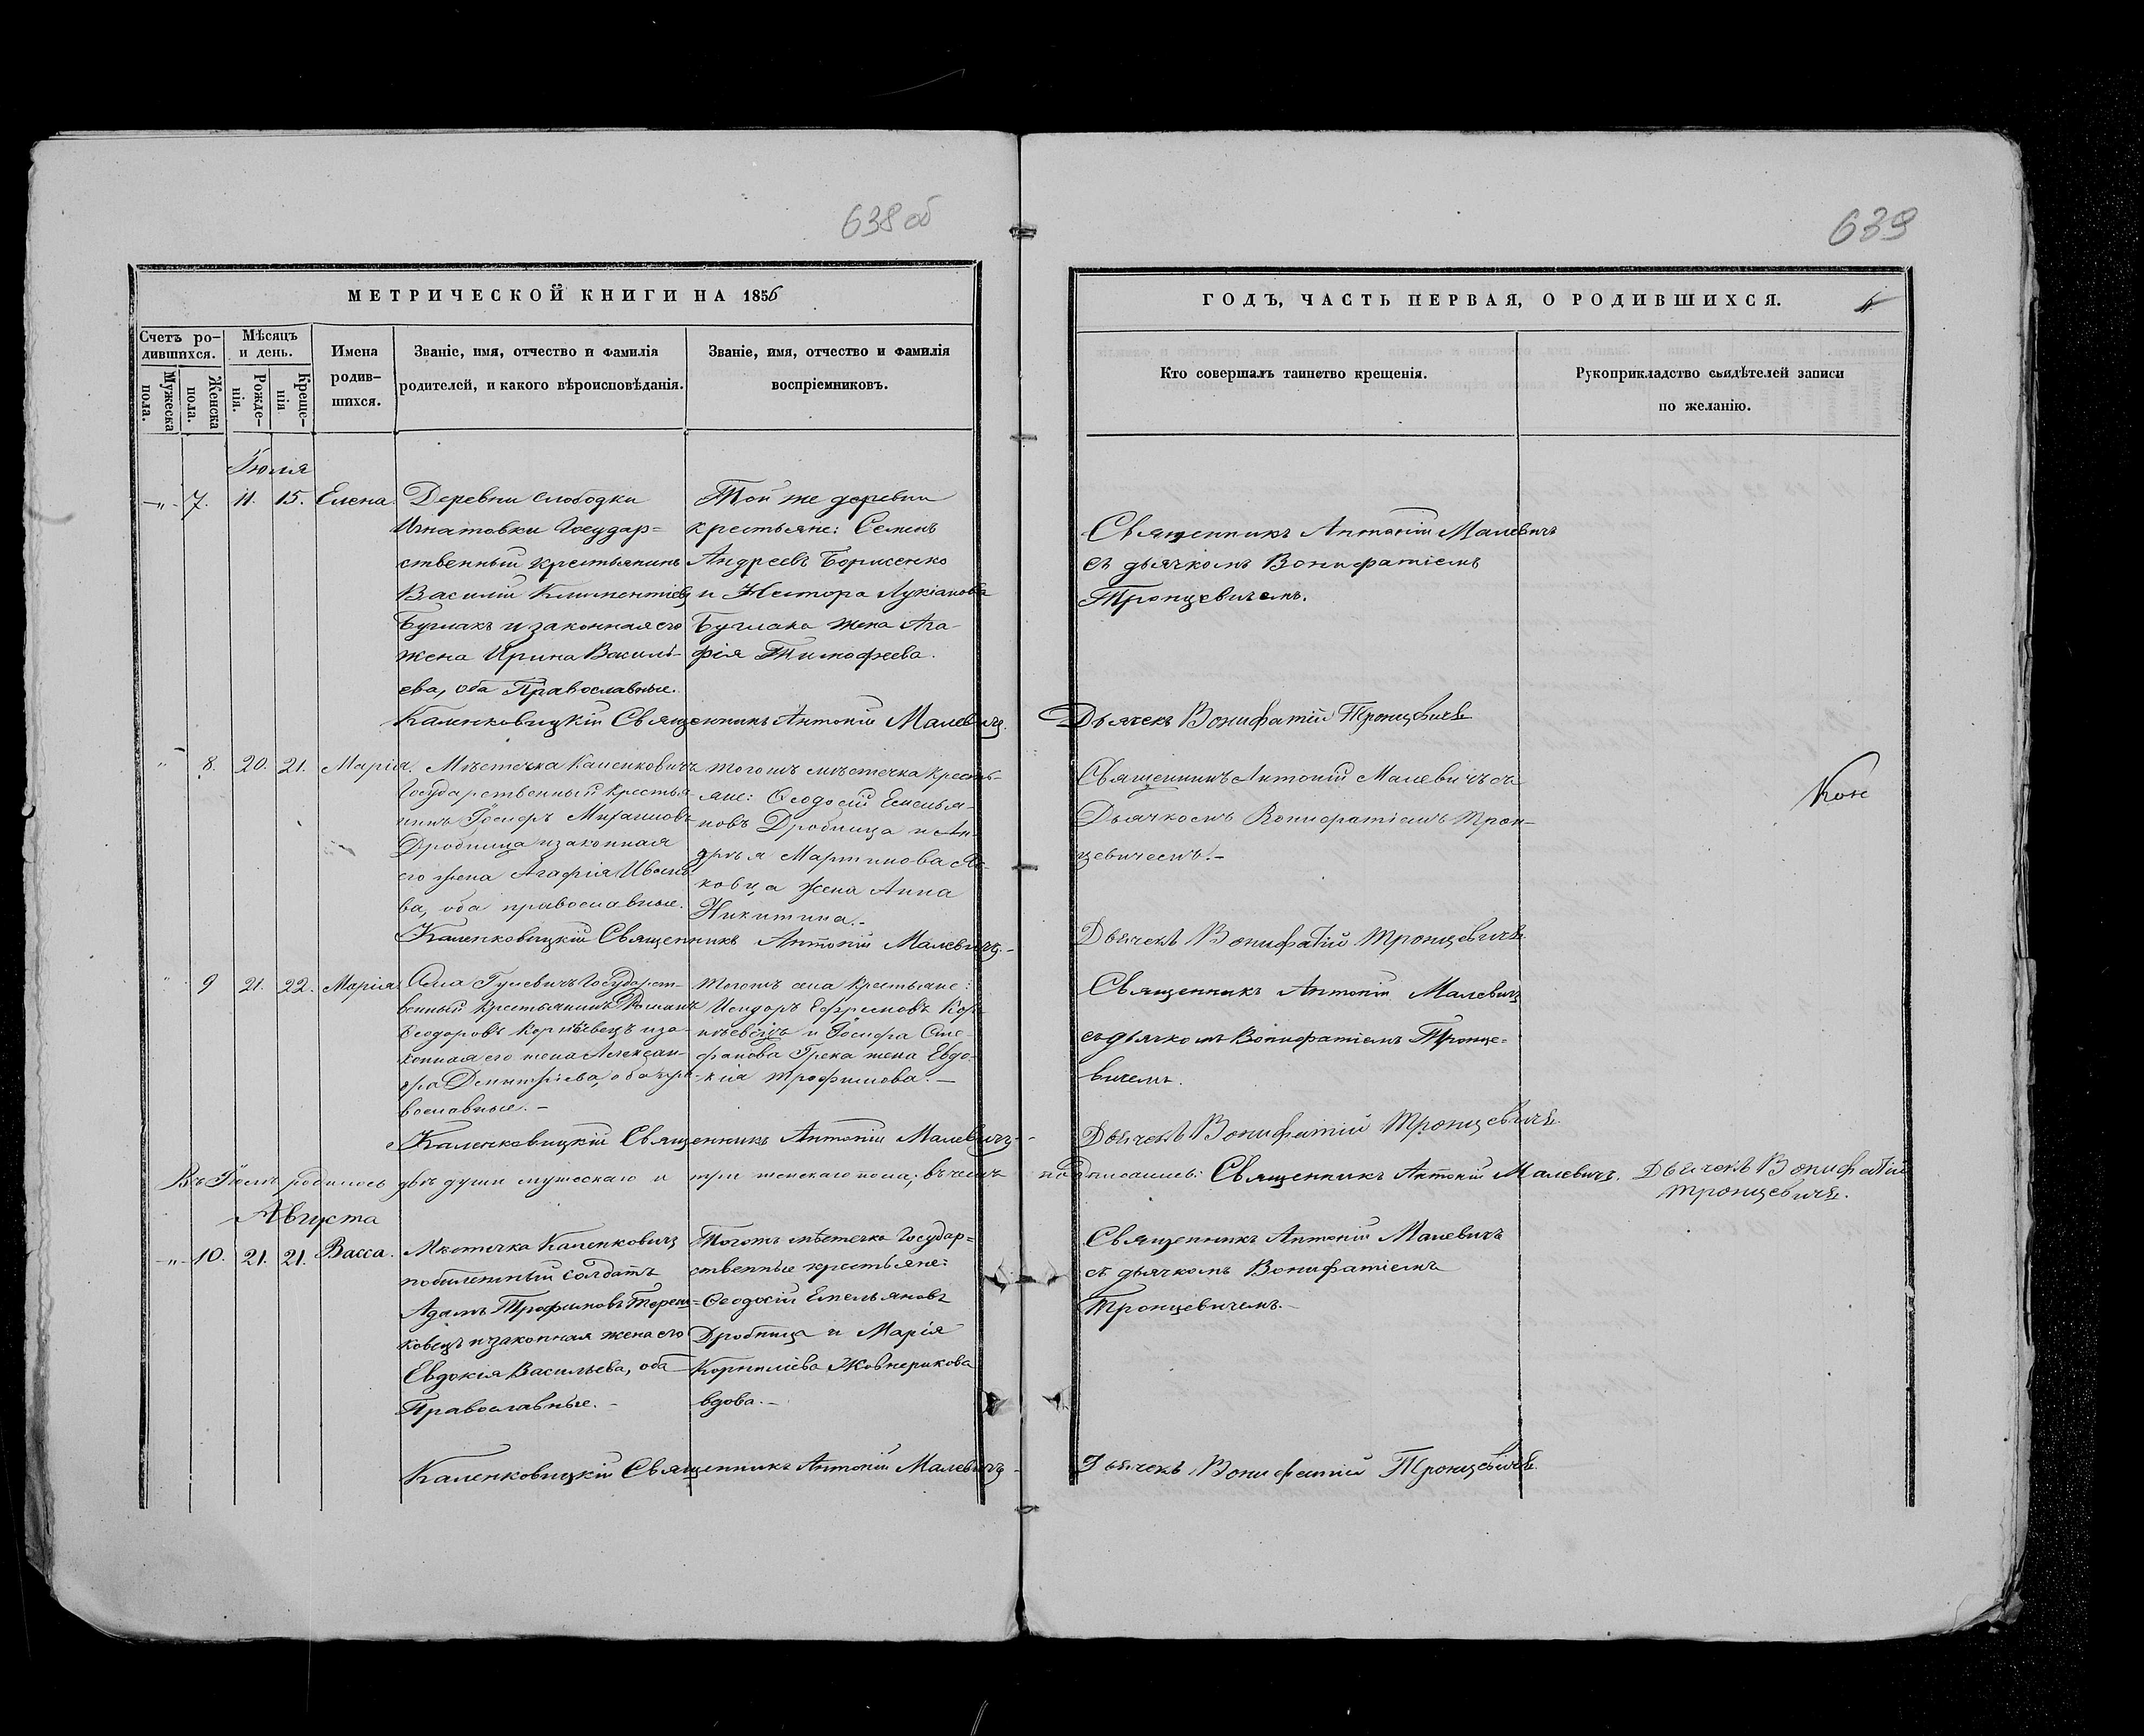 638 об
639
МЕТРИЧЕСКОЙ КНИГИ НА 1856
ГОДЪ, ЧАСТЬ ПЕРВАЯ, О РОДИВШИХСЯ.
Счетъ ро-
дившихся.
Мужеска
пола.
Женска
пола.
Мѣсяцъ
и день.
Рожде-
нія.
Креще-
нія
Имена
родив-
шихся.
Званіе, имя, отчество и фамилія
родителей, и какого вѣроисповѣданія.
Званіе, имя, отчество и фамилія
воспріемниковъ.
Кто совершалъ таинство крещенія.
Рукоприкладство свидѣтелей записи
по желанію.
Іюля
-"- 7. 11. 15. Елена.
Деревни слободки
Игнатовки Государ=
ственный крестьянинъ
Василій Климентіевъ
Буглакъ и законная его
жена Ирина Василь-
ева, оба Православные.
Той же деревни
крестьяне: Семенъ
Андреевъ Борисенко
и Нестора Лукіанова
Буглака жена Ага-
фія Тимофеева.
Священникъ Антоній Малевичъ
съ дьячкомъ Вонифатіемъ
Тронцевичемъ.
Каленковицкій Священникъ Антоній Малевичъ.
Дьячекъ Вонифатій Тронцевичъ
" 8. 20. 21. Марія.
Мѣстечка Каленковичъ
Государственный крестья
нинъ Іосифъ
Дробница и законная
его жена Агафія Ивано
ва, оба православные.
тогожъ мѣстечка кресть-
яне: Ѳеодосій Емелья-
новъ Дробница и Ан-
дрея Мартинова
ковца жена Анна
Никитина.-
Священникъ Антоній Малевичъ съ
Дьячкомъ Вонифатіемъ Трон-
цевичемъ.-
Каленковицкій Священникъ Антоній Малевичъ.-
Дьячекъ Вонифатій Тронцевичъ
" 9 21. 22. Марія
Села Гулевичъ Государст-
венный крестьянинъ Романъ
Ѳеодоровъ Корнѣевецъ и за-
конная его жена Алексан-
дра Димитріева, оба пра-
вославные.-
тогожъ села крестьяне:
Исидоръ Ефремовъ Кор-
нѣевецъ и Іосифа Сте-
фанова Грека жена Евдо-
кія Трофимова.-
Священникъ Антоній Малевичъ
съ дьячкомъ Вонифатіемъ Тронце=
вичемъ.
Каленковицкій Священникъ Антоній Малевичъ-
Дьячекъ Вонифатій Тронцевичъ.
Въ Іюлѣ родилось двѣ души мужескаго и три женскаго пола; въ чемъ
подписались: Священникъ Антоній Малевичъ. Дьячекъ Вонифатій
Тронцевичъ.
Августа
-"- 10. 21. 21. Васса.
Мѣстечка Каленковичъ
побилетный солдатъ
Адамъ Трофимовъ Тереш=
ковецъ и законная жена его
Евдокія Васильева, оба
Православные.-
Тогожъ мѣстечка Государ=
ственные крестьяне:
Ѳеодосій Емельяновъ
Дробница и Марія
Корниліева Жовнерикова
вдова.-
Священникъ Антоній Малевичъ
съ дьячкомъ Вонифатіемъ
Тронцевичемъ.-
Каленковицкій Священникъ Антоній Малевичъ-
Дьячекъ Вонифатій Тронцевичъ.